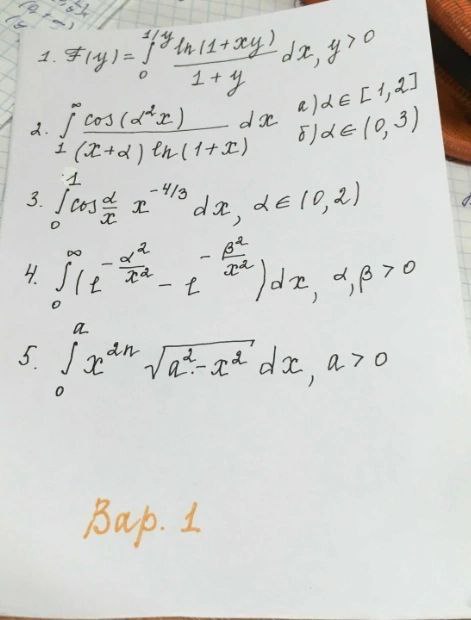 1. F(y) = ∫₀^{1/y} ln(1+xy)/(1+y) dx, y > 0
2. ∫₁^∞ cos(α²x)/((x+α) ln(1+x)) dx а) α ∈ [1,2]
б) α ∈ (0,3)
3. ∫₀^1 cos α/x x^{-4/3} dx, α ∈ (0,2)
4. ∫₀^∞ (e^{-α²/x²} - e^{-β²/x²}) dx, α, β > 0
5. ∫₀^a x^{2n} √(a²-x²) dx, a > 0
Вар. 1